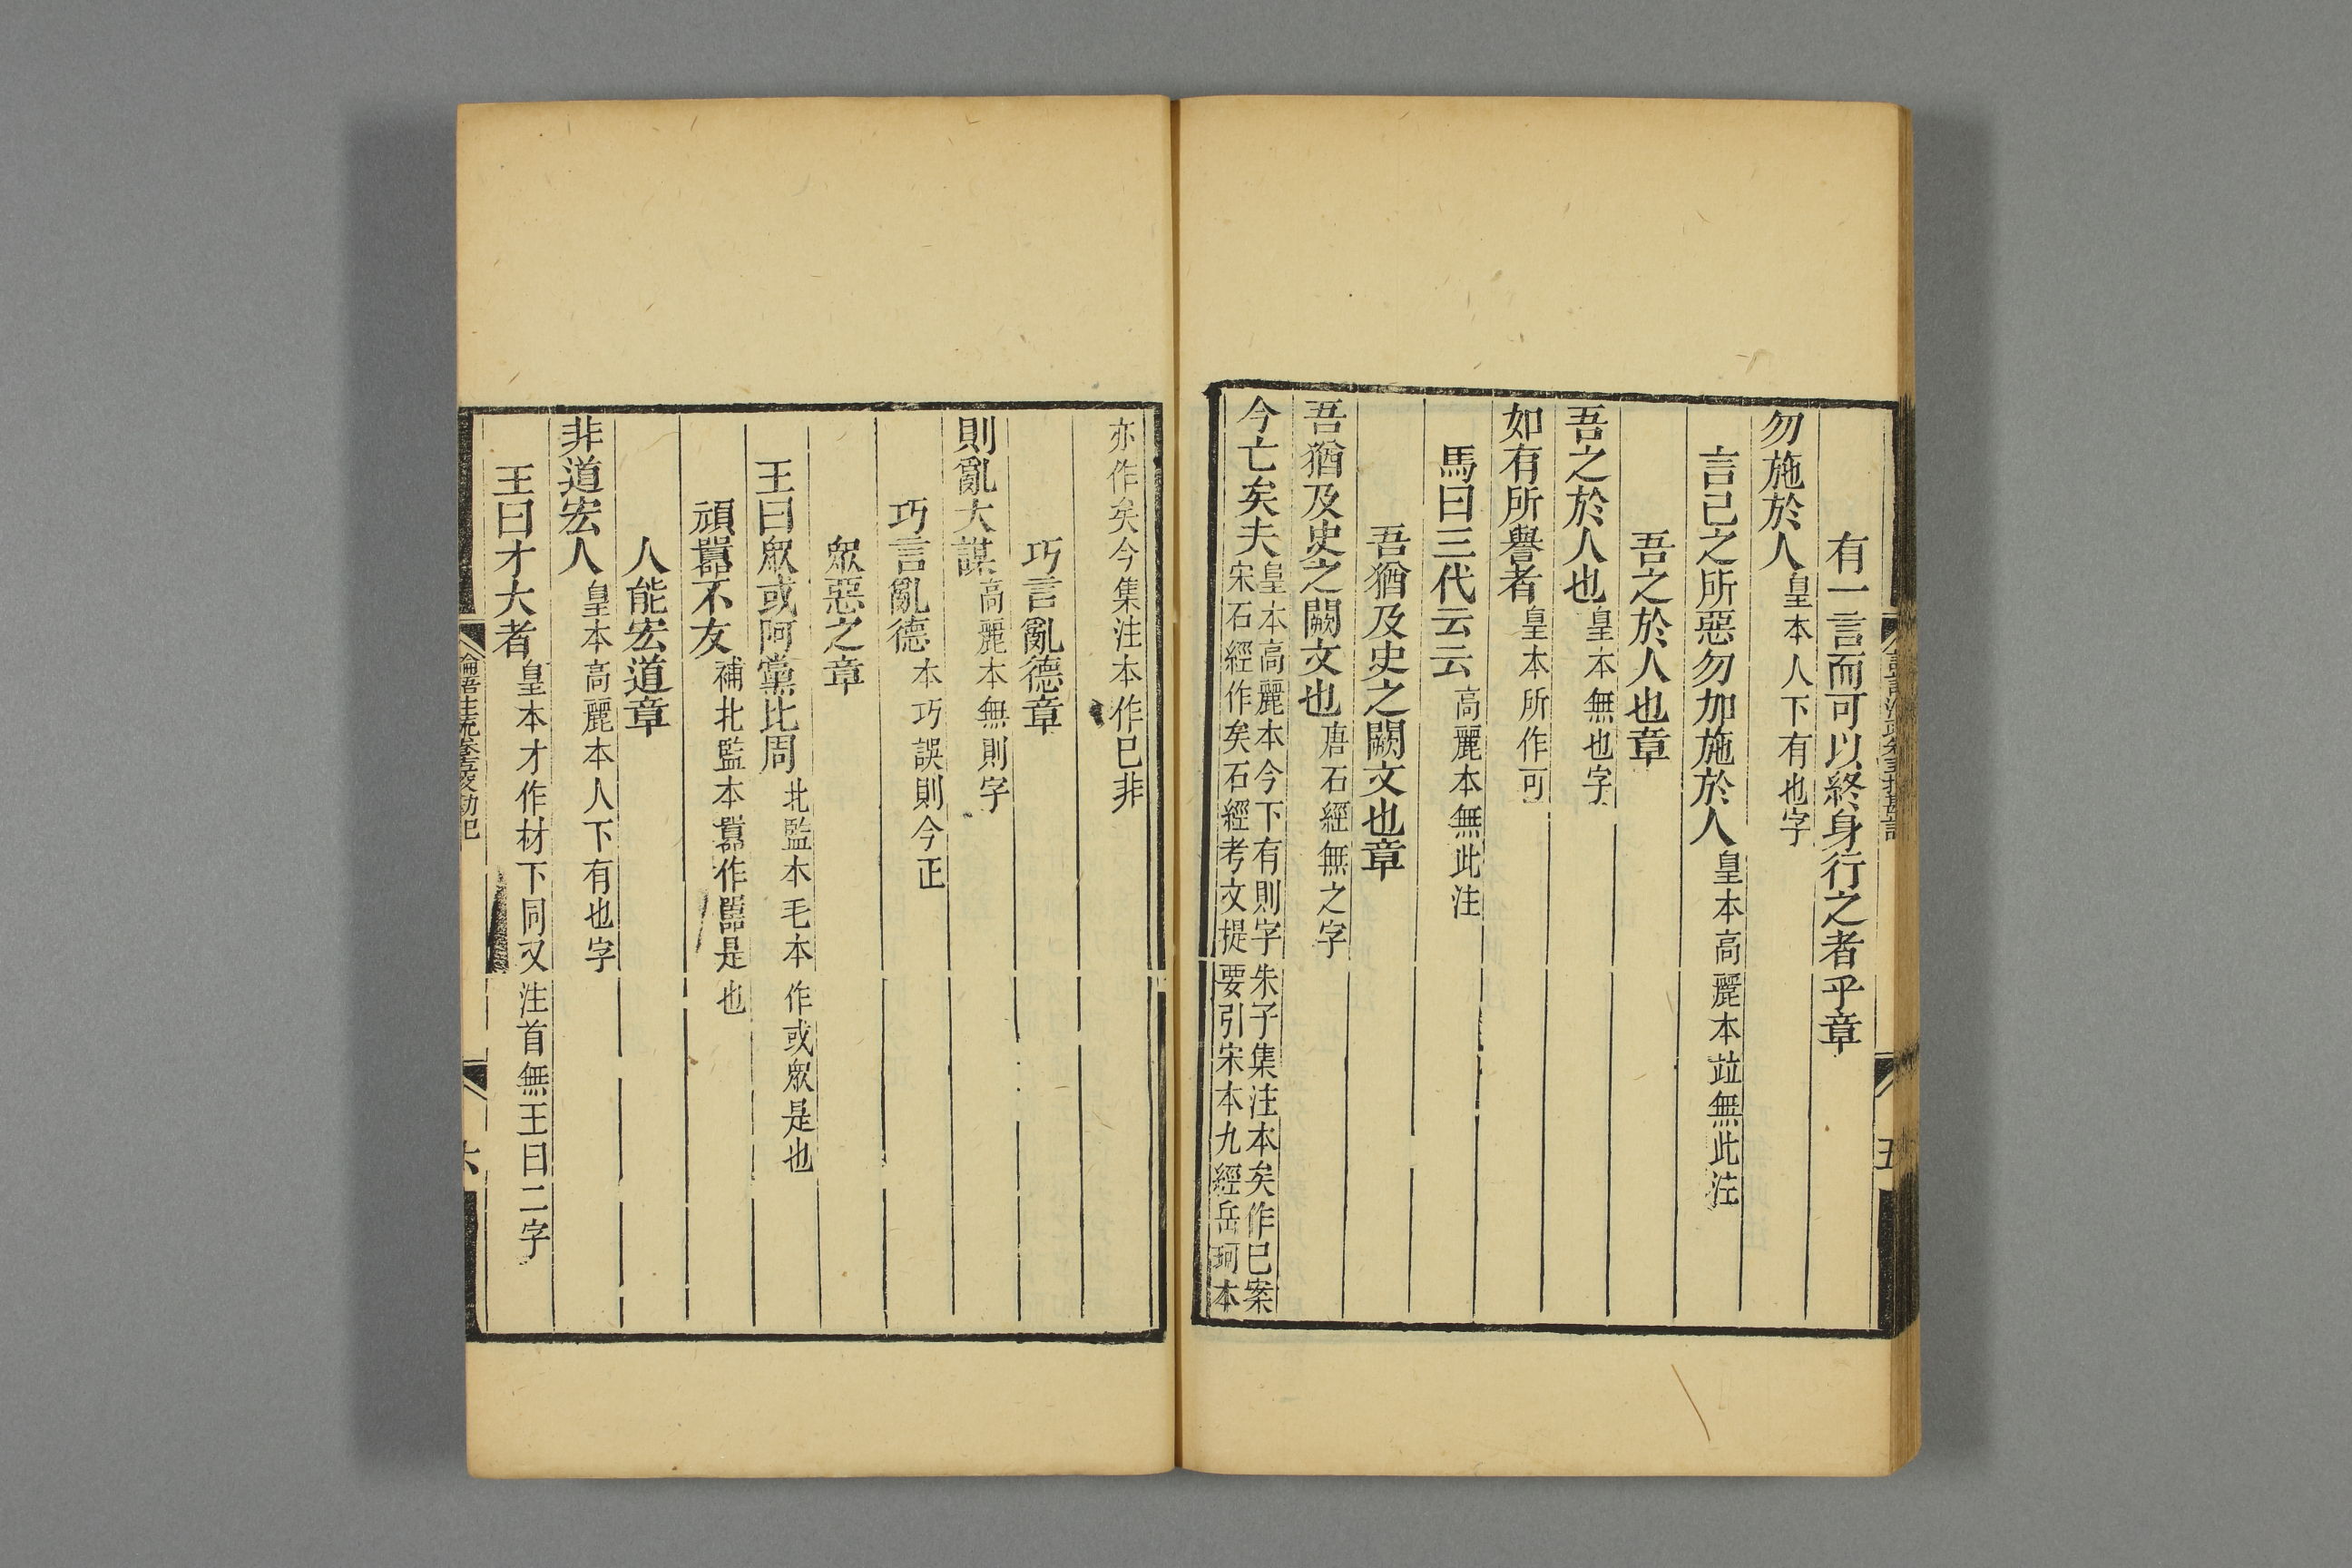 有一言而可以終身行之者乎章
勿施於人皇本人下有也字
言己之所惡勿加施於人皇本高麗本竝無此注
吾之於人也章
吾之於人也皇本無也字
如有所譽者皇本所作可
馬曰三代云云高麗本無此注
吾猶及史之闕文也章
吾猶及史之闕文也唐石經無之字
今亡矣夫皇本高麗本今下有則字朱子集注本矣作已案
宋石經作矣石經考文提要引宋本九經岳珂本
五
亦作矣今集注本作已非
巧言亂德章
則亂大謀高麗本無則字
巧言亂德本巧誤則今正
眾惡之章
王曰眾或阿黨比周北監本毛本作或眾是也
頑嚚不友補北監本嚚作嚚是也
人能宏道章
非道宏人皇本高麗本人下有也字
王曰才大者皇本才作材下同又注首無王曰二字
論語注疏卷十五校勘記
六